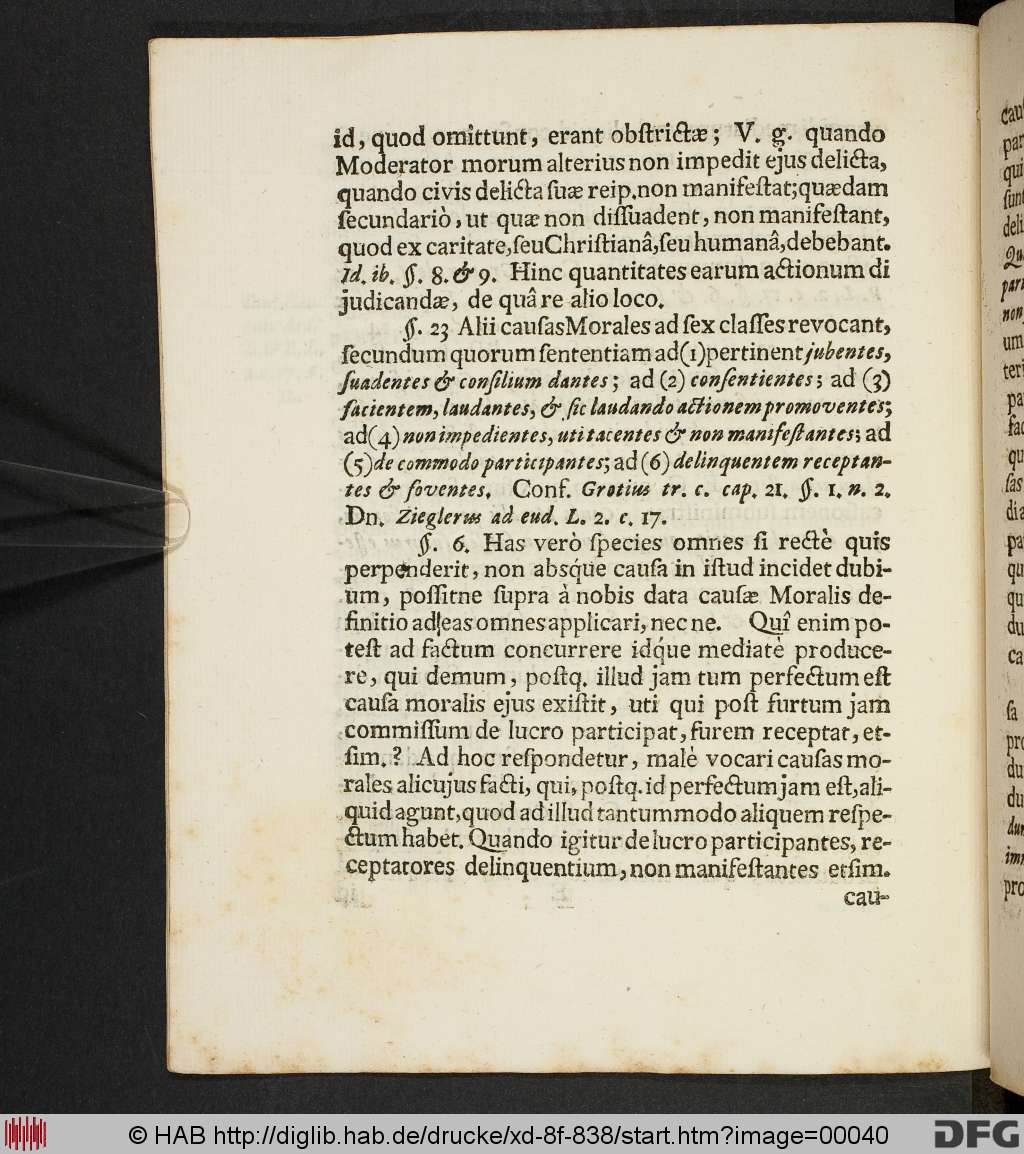 id, quod omittunt, erant obſtrictæ; V. g. quando
Moderator morum alterius non impedit ejus delicta,
quando civis delicta ſuæ reip. non manifeſtat; quædam
ſecundariò, ut quæ non diſſuadent, non manifeſtant,
quod ex caritate, ſeu Chriſtianâ, ſeu humanâ, debebant.
Id. ib. §. 8. & 9. Hinc quantitates earum actionum di
judicandæ, de quâ re alio loco.
§. 23 Alii cauſas Morales ad ſex claſſes revocant,
ſecundum quorum ſententiam ad (1) pertinent jubentes,
ſuadentes & conſilium dantes; ad (2) conſentientes; ad (3)
facientem, laudantes, & ſic laudando actionem promoventes;
ad (4) non impedientes, uti tacentes & non manifeſtantes; ad
(5) de commodo participantes; ad (6) delinquentem receptan-
tes & foventes. Conf. Grotius tr. c. cap. 21. §. 1. n. 2.
Dn. Zieglerus ad eud. L. 2. c. 17.
§. 6. Has verò ſpecies omnes ſi rectè quis
perpenderit, non absq́ue cauſa in iſtud incidet dubi-
um, poſſitne ſupra à nobis data cauſæ Moralis de-
finitio ad eas omnes applicari, nec ne. Quî enim po-
teſt ad factum concurrere idq́ue mediatè produce-
re, qui demum, poſtq. illud jam tum perfectum eſt
cauſa moralis ejus exiſtit, uti qui poſt furtum jam
commiſſum de lucro participat, furem receptat, et-
ſim.? Ad hoc reſpondetur, malè vocari cauſas mo-
rales alicujus facti, qui, poſtq. id perfectum jam eſt, ali-
quid agunt, quod ad illud tantummodo aliquem reſpe-
ctum habet. Quando igitur de lucro participantes, re-
ceptatores delinquentium, non manifeſtantes etſim.
cau-
cau
par
qui
ſunt
deli
Qua
pari
non
um
teri
pa
fac
qu
ſas
dia
pa
qu
qu
du
ca
ſa
pro
du
du
dun
imm
pro
© HAB http://diglib.hab.de/drucke/xd-8f-838/start.htm?image=00040
DFG